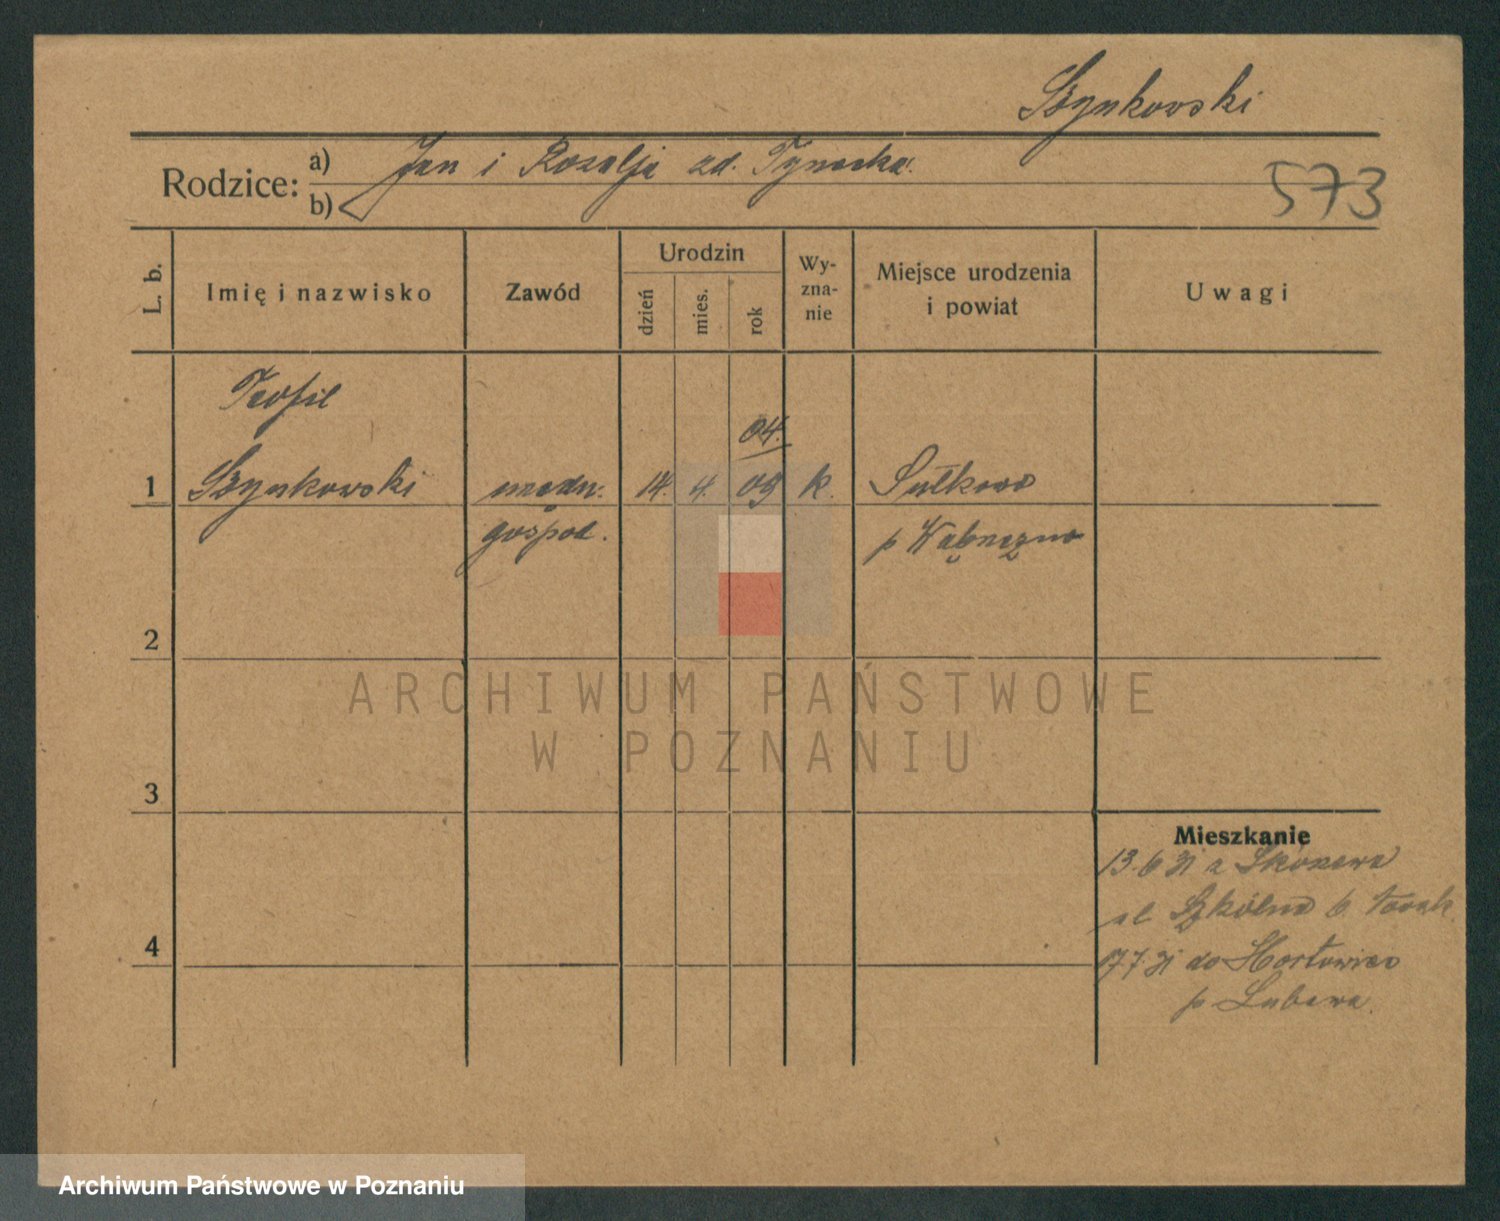 Szynkowski
Rodzice: a) Jan i Rozalja zd. Tynecka.
b)
573
L. b.
Imię i nazwisko
Zawód
Urodzin
dzień
mies.
rok
Wy-
zna-
nie
Miejsce urodzenia
i powiat
Uwagi
Teofil
04.
1 Szynkowski urzędn. 14. 4. 09 k. Sułkowo
gospod. p Wąbrzeźno
2
ARCHIWUM PAŃSTWOWE
W POZNANIU
3
Mieszkanie
13.6 31 z
ul Szkólna 6
4
17 7 31 do
p Lubawa.
Archiwum Państwowe w Poznaniu